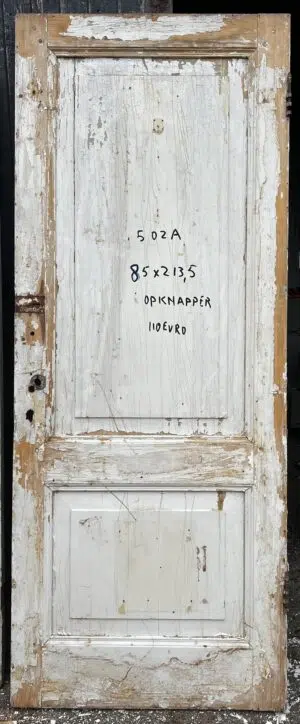 502A
85x213,5
OPKNAPPER
110EURO